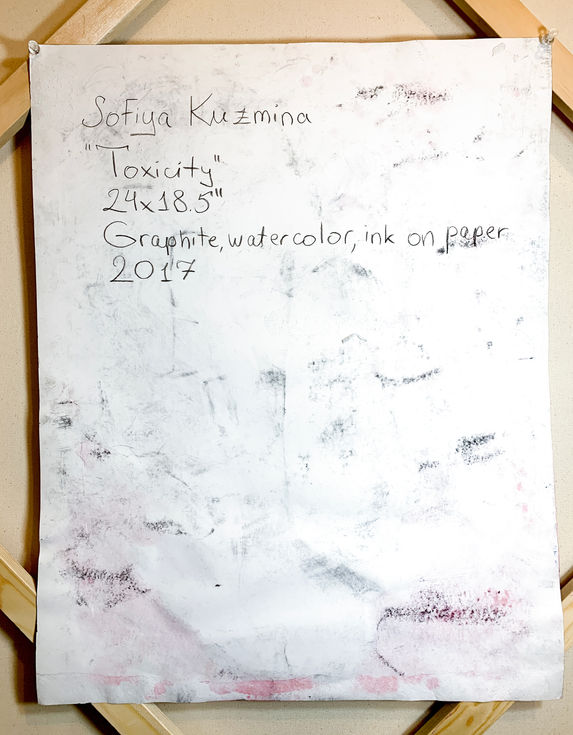 Sofiya Kuzmina
"Toxicity"
24x18.5"
Graphite, watercolor, ink on paper
2017